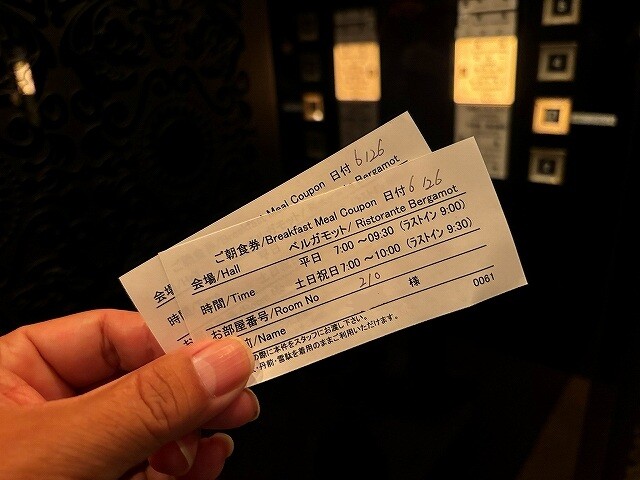 Meal Coupon 日付 6/26
Bergamot
会場
時間
ご朝食券/Breakfast Meal Coupon 日付 6/26
会場/Hall ベルガモット/ Ristorante Bergamot
平日 7:00 ～09:30 (ラストイン 9:00)
時間/Time 土日祝日7:00 ～10:00 (ラストイン 9:30)
お部屋番号/Room No 210
/Name 様 0061
の際に本件をスタッフにお渡し下さい。
・丹前・雪駄を着用のままご利用いただけます。